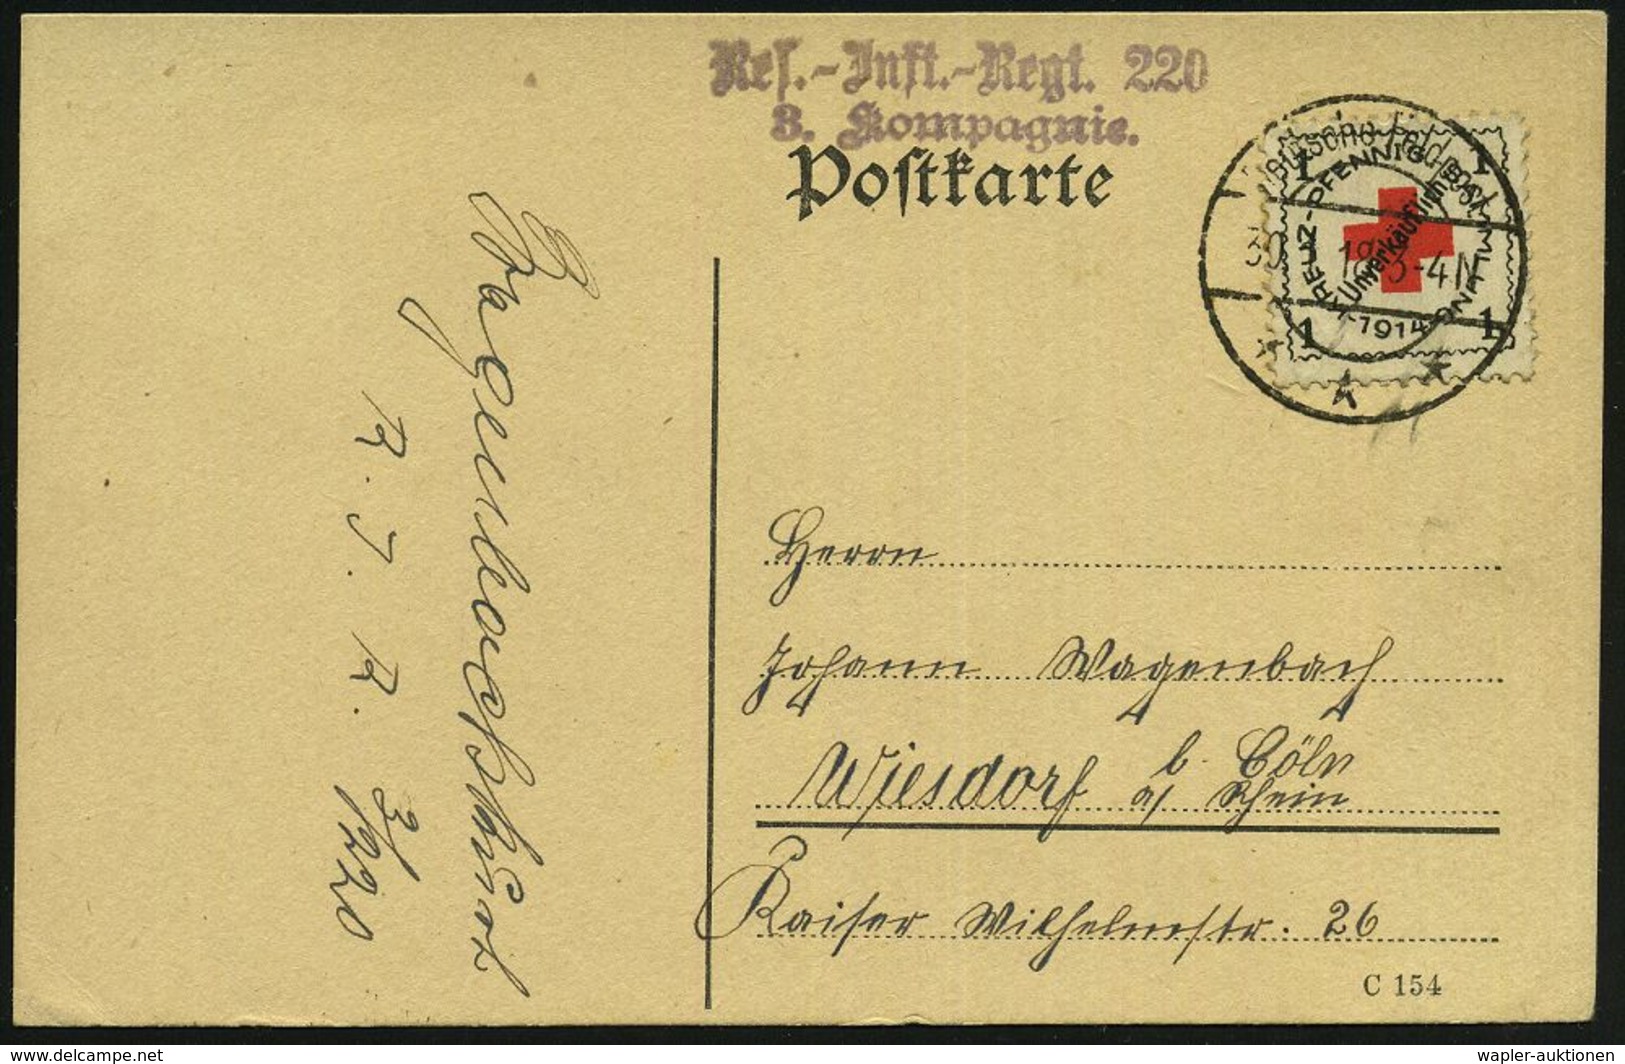 Res.-Inft.-Regt. 220
3. Kompagnie.
Postkarte
Deutsche Feldpost
3-4 N
KREUZ-PFENNIG SAMMLUNG
1914
Unverkäuflich
1 1
1 1
Herrn
Johann Wagenbach
Wiesdorf b. Cöln
a/ Rhein
Kaiser Wilhelmstr. 26
C 154
R. J. R.
3/220
www.delcampe.net
wapler-auktionen